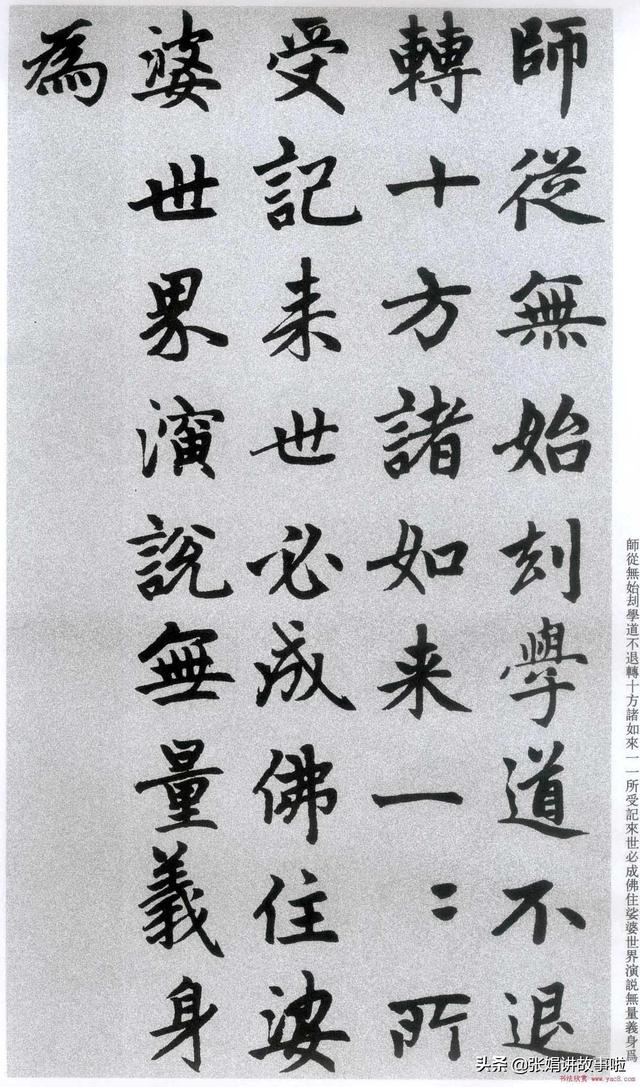 師從無始刦學道不退
轉十方諸如来一〻所
受記来世必成佛住娑
婆世界演說無量義身
為
師從無始刧學道不退轉十方諸如來一一所受記來世必成佛住娑婆世界演説無量義身爲
头条 @张娟讲故事啦
书法欣赏 www.yac8.com